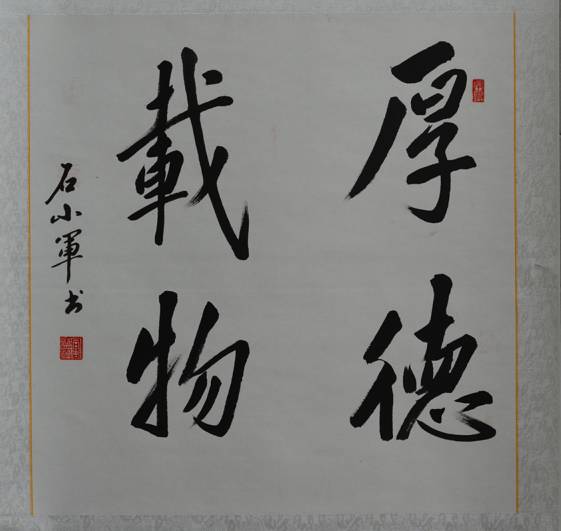 厚德
載物
石小軍书